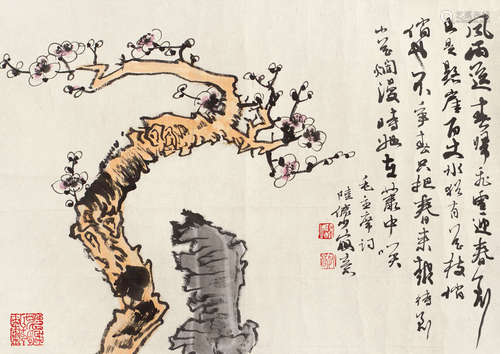 風雨送春歸飛雪迎春到
已是懸崖百丈冰猶有花枝俏
俏也不争春只把春来報待到
山花爛漫時她在叢中笑
毛主席詞
陸儼少寫意